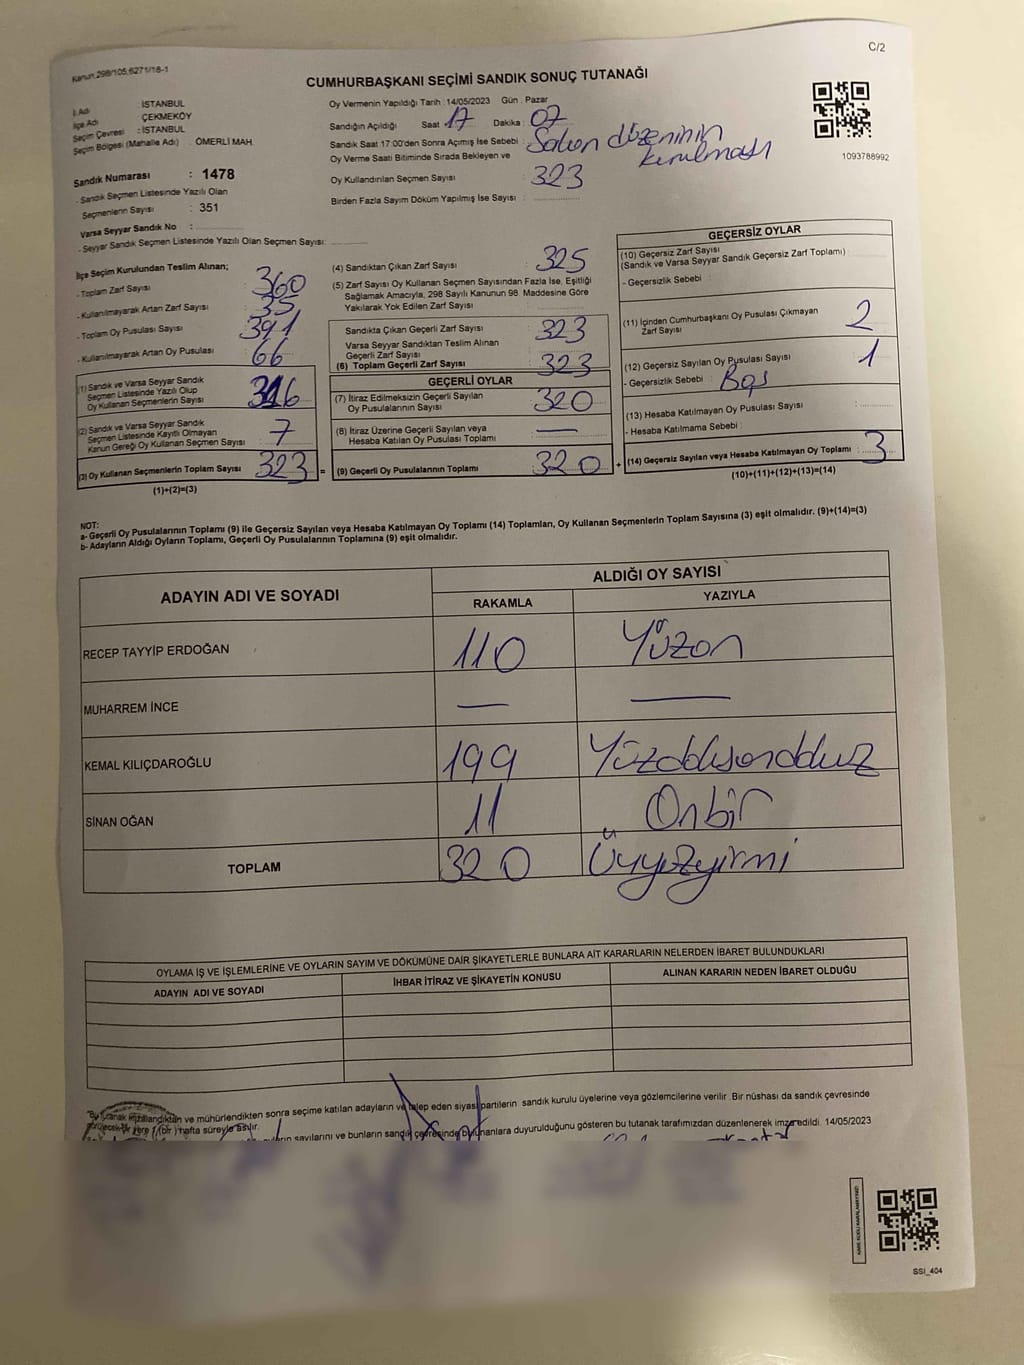 C/2
Kanun:298/105,6271/18-1
CUMHURBAŞKANI SEÇİMİ SANDIK SONUÇ TUTANAĞI
İl Adı : İSTANBUL
İlçe Adı : ÇEKMEKÖY
Seçim Çevresi : İSTANBUL
Seçim Bölgesi (Mahalle Adı) : ÖMERLİ MAH.
Sandık Numarası : 1478
- Sandık Seçmen Listesinde Yazılı Olan
Seçmenlerin Sayısı : 351
Varsa Seyyar Sandık No :
- Seyyar Sandık Seçmen Listesinde Yazılı Olan Seçmen Sayısı:
Oy Vermenin Yapıldığı Tarih : 14/05/2023 Gün : Pazar
Sandığın Açıldığı Saat : 17 Dakika : 07
Sandık Saat 17.00'den Sonra Açımış İse Sebebi : Salon düzeninin kurulması
Oy Verme Saati Bitiminde Sırada Bekleyen ve
Oy Kullandırılan Seçmen Sayısı : 323
Birden Fazla Sayım Döküm Yapılmış İse Sayısı :
1093788992
İlçe Seçim Kurulundan Teslim Alınan;
- Toplam Zarf Sayısı : 360
- Kullanılmayarak Artan Zarf Sayısı : 35
- Toplam Oy Pusulası Sayısı : 391
- Kullanılmayarak Artan Oy Pusulası : 66
(1) Sandık ve Varsa Seyyar Sandık
Seçmen Listesinde Yazılı Olup
Oy Kullanan Seçmenlerin Sayısı : 316
(2) Sandık ve Varsa Seyyar Sandık
Seçmen Listesinde Kayıtlı Olmayan
Kanun Gereği Oy Kullanan Seçmen Sayısı : 7
(3) Oy Kullanan Seçmenlerin Toplam Sayısı : 323 =
(1)+(2)=(3)
(4) Sandıktan Çıkan Zarf Sayısı : 325
(5) Zarf Sayısı Oy Kullanan Seçmen Sayısından Fazla İse, Eşitliği
Sağlamak Amacıyla, 298 Sayılı Kanunun 98. Maddesine Göre
Yakılarak Yok Edilen Zarf Sayısı :
Sandıkta Çıkan Geçerli Zarf Sayısı : 323
Varsa Seyyar Sandıktan Teslim Alınan
Geçerli Zarf Sayısı :
(6) Toplam Geçerli Zarf Sayısı : 323
GEÇERLİ OYLAR
(7) İtiraz Edilmeksizin Geçerli Sayılan
Oy Pusulalarının Sayısı : 320
(8) İtiraz Üzerine Geçerli Sayılan veya
Hesaba Katılan Oy Pusulası Toplamı : —
(9) Geçerli Oy Pusulalarının Toplamı : 320 +
GEÇERSİZ OYLAR
(10) Geçersiz Zarf Sayısı
(Sandık ve Varsa Seyyar Sandık Geçersiz Zarf Toplamı) :
- Geçersizlik Sebebi :
(11) İçinden Cumhurbaşkanı Oy Pusulası Çıkmayan
Zarf Sayısı : 2
(12) Geçersiz Sayılan Oy Pusulası Sayısı : 1
- Geçersizlik Sebebi : Boş
(13) Hesaba Katılmayan Oy Pusulası Sayısı :
- Hesaba Katılmama Sebebi :
(14) Geçersiz Sayılan veya Hesaba Katılmayan Oy Toplamı : 3
(10)+(11)+(12)+(13)=(14)
NOT:
a- Geçerli Oy Pusulalarının Toplamı (9) ile Geçersiz Sayılan veya Hesaba Katılmayan Oy Toplamı (14) Toplamları, Oy Kullanan Seçmenlerin Toplam Sayısına (3) eşit olmalıdır. (9)+(14)=(3)
b- Adayların Aldığı Oyların Toplamı, Geçerli Oy Pusulalarının Toplamına (9) eşit olmalıdır.
ADAYIN ADI VE SOYADI
ALDIĞI OY SAYISI
RAKAMLA YAZIYLA
RECEP TAYYİP ERDOĞAN 110 Yüzon
MUHARREM İNCE — —
KEMAL KILIÇDAROĞLU 199
SİNAN OĞAN 11 Onbir
TOPLAM 320 Üçyüzyirmi
OYLAMA İŞ VE İŞLEMLERİNE VE OYLARIN SAYIM VE DÖKÜMÜNE DAİR ŞİKAYETLERLE BUNLARA AİT KARARLARIN NELERDEN İBARET BULUNDUKLARI
ADAYIN ADI VE SOYADI İHBAR İTİRAZ VE ŞİKAYETİN KONUSU ALINAN KARARIN NEDEN İBARET OLDUĞU
"Bu tutanak imzalandıktan ve mühürlendikten sonra seçime katılan adayların ve talep eden siyasi partilerin sandık kurulu üyelerine veya gözlemcilerine verilir. Bir nüshası da sandık çevresinde
yere 1 (bir) hafta süreyle asılır.
sayılarını ve bunların sandık çevresinde bulunanlara duyurulduğunu gösteren bu tutanak tarafımızdan düzenlenerek imza edildi. 14/05/2023
SSI_404